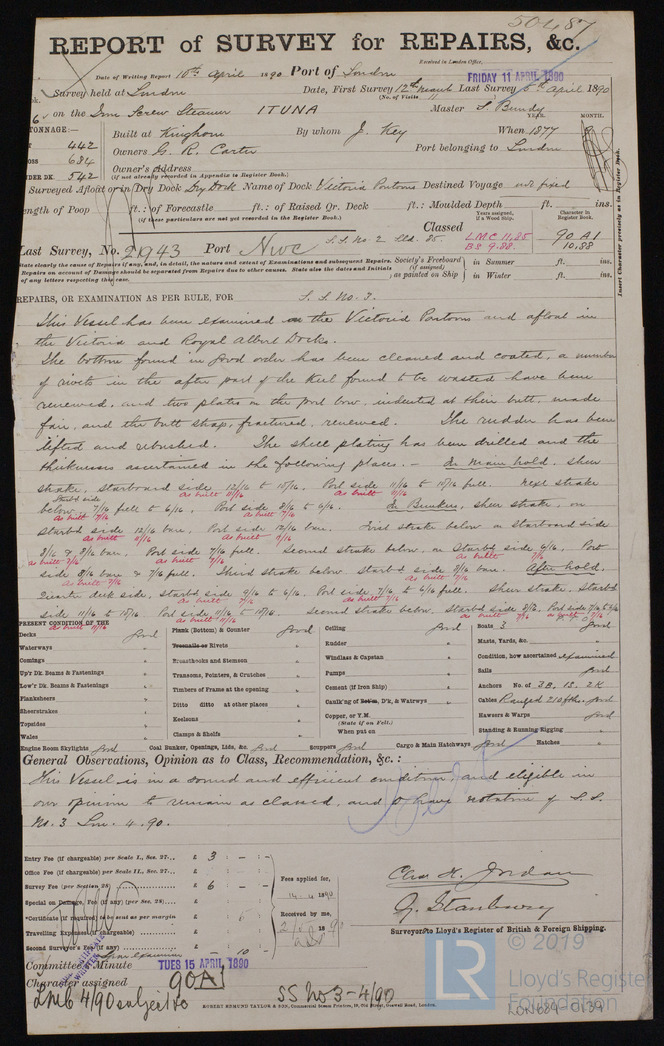 50487
REPORT of SURVEY for REPAIRS, &c.
Received in London Office,
Date of Writing Report 10th April 1890 Port of London
FRIDAY 11 APRIL 1890
Survey held at London Date, First Survey 12th March Last Survey 5th April 1890
(No. of Visits 11)
on the Iron Screw Steamer ITUNA Master S. Bundy
TONNAGE:— YEAR. MONTH.
442 Built at Kinghorn By whom J. Key When 1877
684 Owners G. R. Carter Port belonging to London
UNDER DK. 542 Owner's Address
(if not already recorded in Appendix to Register Book.)
Surveyed Afloat or in Dry Dock Dry Dock Name of Dock Victoria Pontoons Destined Voyage not fixed
Length of Poop ft.: of Forecastle ft.: of Raised Qr. Deck ft.: Moulded Depth ft. ins.
(if these particulars are not yet recorded in the Register Book.)
Years assigned, if a Wood Ship. Character in Register Book.
Classed LMC 11,85 90 A1
BS 9.88. 10,88
Insert Character precisely as in Register Book.
Last Survey, No. 21943 Port Nwc S.S. No 2 Lld. 85.
State clearly the cause of Repairs if any, and, in detail, the nature and extent of Examinations and subsequent Repairs.
Repairs on account of Damage should be separated from Repairs due to other causes. State also the dates and Initials
of any letters respecting this case.
Society's Freeboard (if assigned) as painted on Ship in Summer ft. ins.
in Winter ft. ins.
REPAIRS, OR EXAMINATION AS PER RULE, FOR S. S. No. 3.
This Vessel has been examined on the Victoria Pontoons and afloat in
the Victoria and Royal Albert Docks.
The bottom found in good order has been cleaned and coated, a number
of rivets in the after part of the keel found to be wasted have been
renewed, and two plates on the port bow, indented at their butt, made
fair, and the butt strap, fractured, renewed. The rudder has been
lifted and rebushed. The shell plating has been drilled and the
thicknesses ascertained in the following places.— In main hold, sheer
strake, starboard side 12/16 to 10/16. Port side 11/16 to 10/16 full. Next strake
as built 11/16 as built 11/16
Starbd side
below, 7/16 full to 6/16. Port side 8/16 to 6/16. In Bunkers, sheer strake, on
as built 7/16 as built 7/16
Starbd side 12/16 bare. Port side 12/16 bare. First strake below on Starboard side
8/16 & 8/16 bare. Port side 7/16 full. Second strake below, on Starbd side 6/16, Port
side 8/16 bare & 7/16 full. Third strake below Starbd side 8/16 bare. After hold,
Quarter deck side, starbd side 9/16 to 6/16. Port side 7/16 to 6/16 full. Sheer strake, Starbd
side 11/16 to 10/16 Port side 11/16 to 10/16. Second strake below. Starbd side 8/16. Port side 7/16 & 6/16
as built 11/16 as built 11/16
PRESENT CONDITION OF THE
Decks good
Waterways "
Comings "
Up'r Dk. Beams & Fastenings "
Low'r Dk. Beams & Fastenings "
Planksheers
Sheerstrakes "
Topsides "
Wales
Plank (Bottom) & Counter good
Treenails or Rivets "
Breasthooks and Stemson "
Transoms, Pointers, & Crutches "
Timbers of Frame at the opening "
Ditto ditto at other places "
Keelsons "
Clamps & Shelfs "
Ceiling good
Rudder "
Windlass & Capstan "
Pumps "
Cement (if Iron Ship) "
Caulk'ng of Bot'm, D'k, & Watrwys "
Copper, or Y.M.
(State if on Felt.)
When put on
Boats 3 good
Masts, Yards, &c. "
Condition, how ascertained examined
Sails good
Anchors No. of 3B. 1S. 2K
Cables Ranged 210 fths. good
Hawsers & Warps good
Standing & Running Rigging "
Engine Room Skylights good Coal Bunker, Openings, Lids, &c. good Scuppers good Cargo & Main Hatchways good Hatches "
General Observations, Opinion as to Class, Recommendation, &c.:
This Vessel is in a sound and efficient condition, and eligible in
our opinion to remain as classed, and to have notation of S. S.
No. 3 Lon. 4.90.
Entry Fee (if chargeable) per Scale I., Sec. 27... £ 3 : – : –
Office Fee (if chargeable) per Scale II., Sec. 27... £
Survey Fee (per Section 28) £ 6 – –
Special on Damage, Fee (if any) (per Sec. 28) £
*Certificate (if required) to be sent as per margin
Travelling Expenses (if chargeable) £
Second Surveyor's Fee (if any) £ 10 –
Fees applied for,
14.4.1890
Received by me,
Chas H. Jordan
G. Stanbury
Surveyors to Lloyd's Register of British & Foreign Shipping.
Committee's Minute TUES 15 APRIL 1890
Character assigned 90A1
LMC 4/90 subject to SS No 3-4/90
ROBERT EDMUND TAYLOR & SON, Commercial Steam Printers, 19, Old Street, Goswell Road, London.
LR © 2019
Lloyd's Register
Foundation
LON689-0134